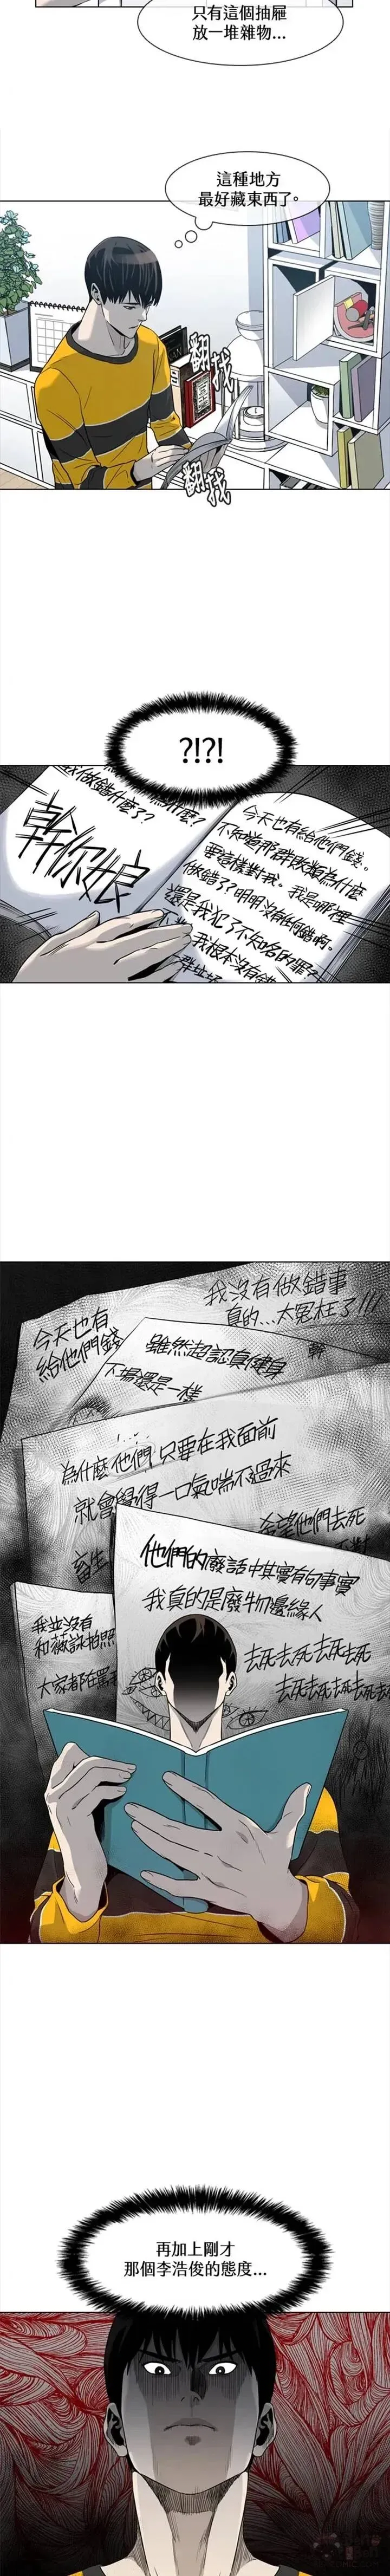 只有這個抽屜
放一堆雜物...
這種地方
最好藏東西了。
翻找
翻找
?!?!
做錯什麼了?
幹你娘
今天也有給他們錢。
不知道那群敗類為什麼
要這樣對我。我是哪裡
做錯了?明明沒有任何錯啊。
還是我犯了不知名的罪?
我根本沒有錯
我沒有做錯事
真的...太冤枉了!!!
今天也有
給他們錢
雖然超認真健身
下場還是一樣
幹
為什麼他們只要在我面前
就會覺得一口氣喘不過來
希望他們去死
畜生
他們的廢話中其實有句事實
我真的是廢物邊緣人
我並沒有
和薇詠拍照
大家都在罵
去死去死去死去死
去死去死去死去死
再加上剛才
那個李浩俊的態度...